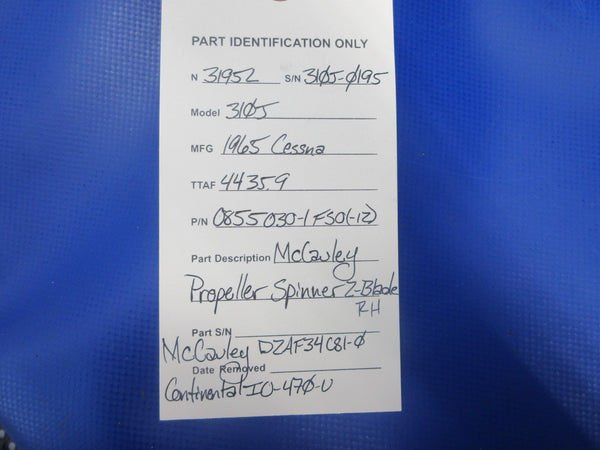 PART IDENTIFICATION ONLY
N 3195L S/N 310J-0195
Model 310J
MFG 1965 Cessna
TTAF 4435.9
P/N 0855030-1 FSO(-12)
Part Description McCauley
Propeller Spinner 2-Blade
RH
Part S/N
McCauley D2AF34C81-0
Date Removed
Continental IO-470-U